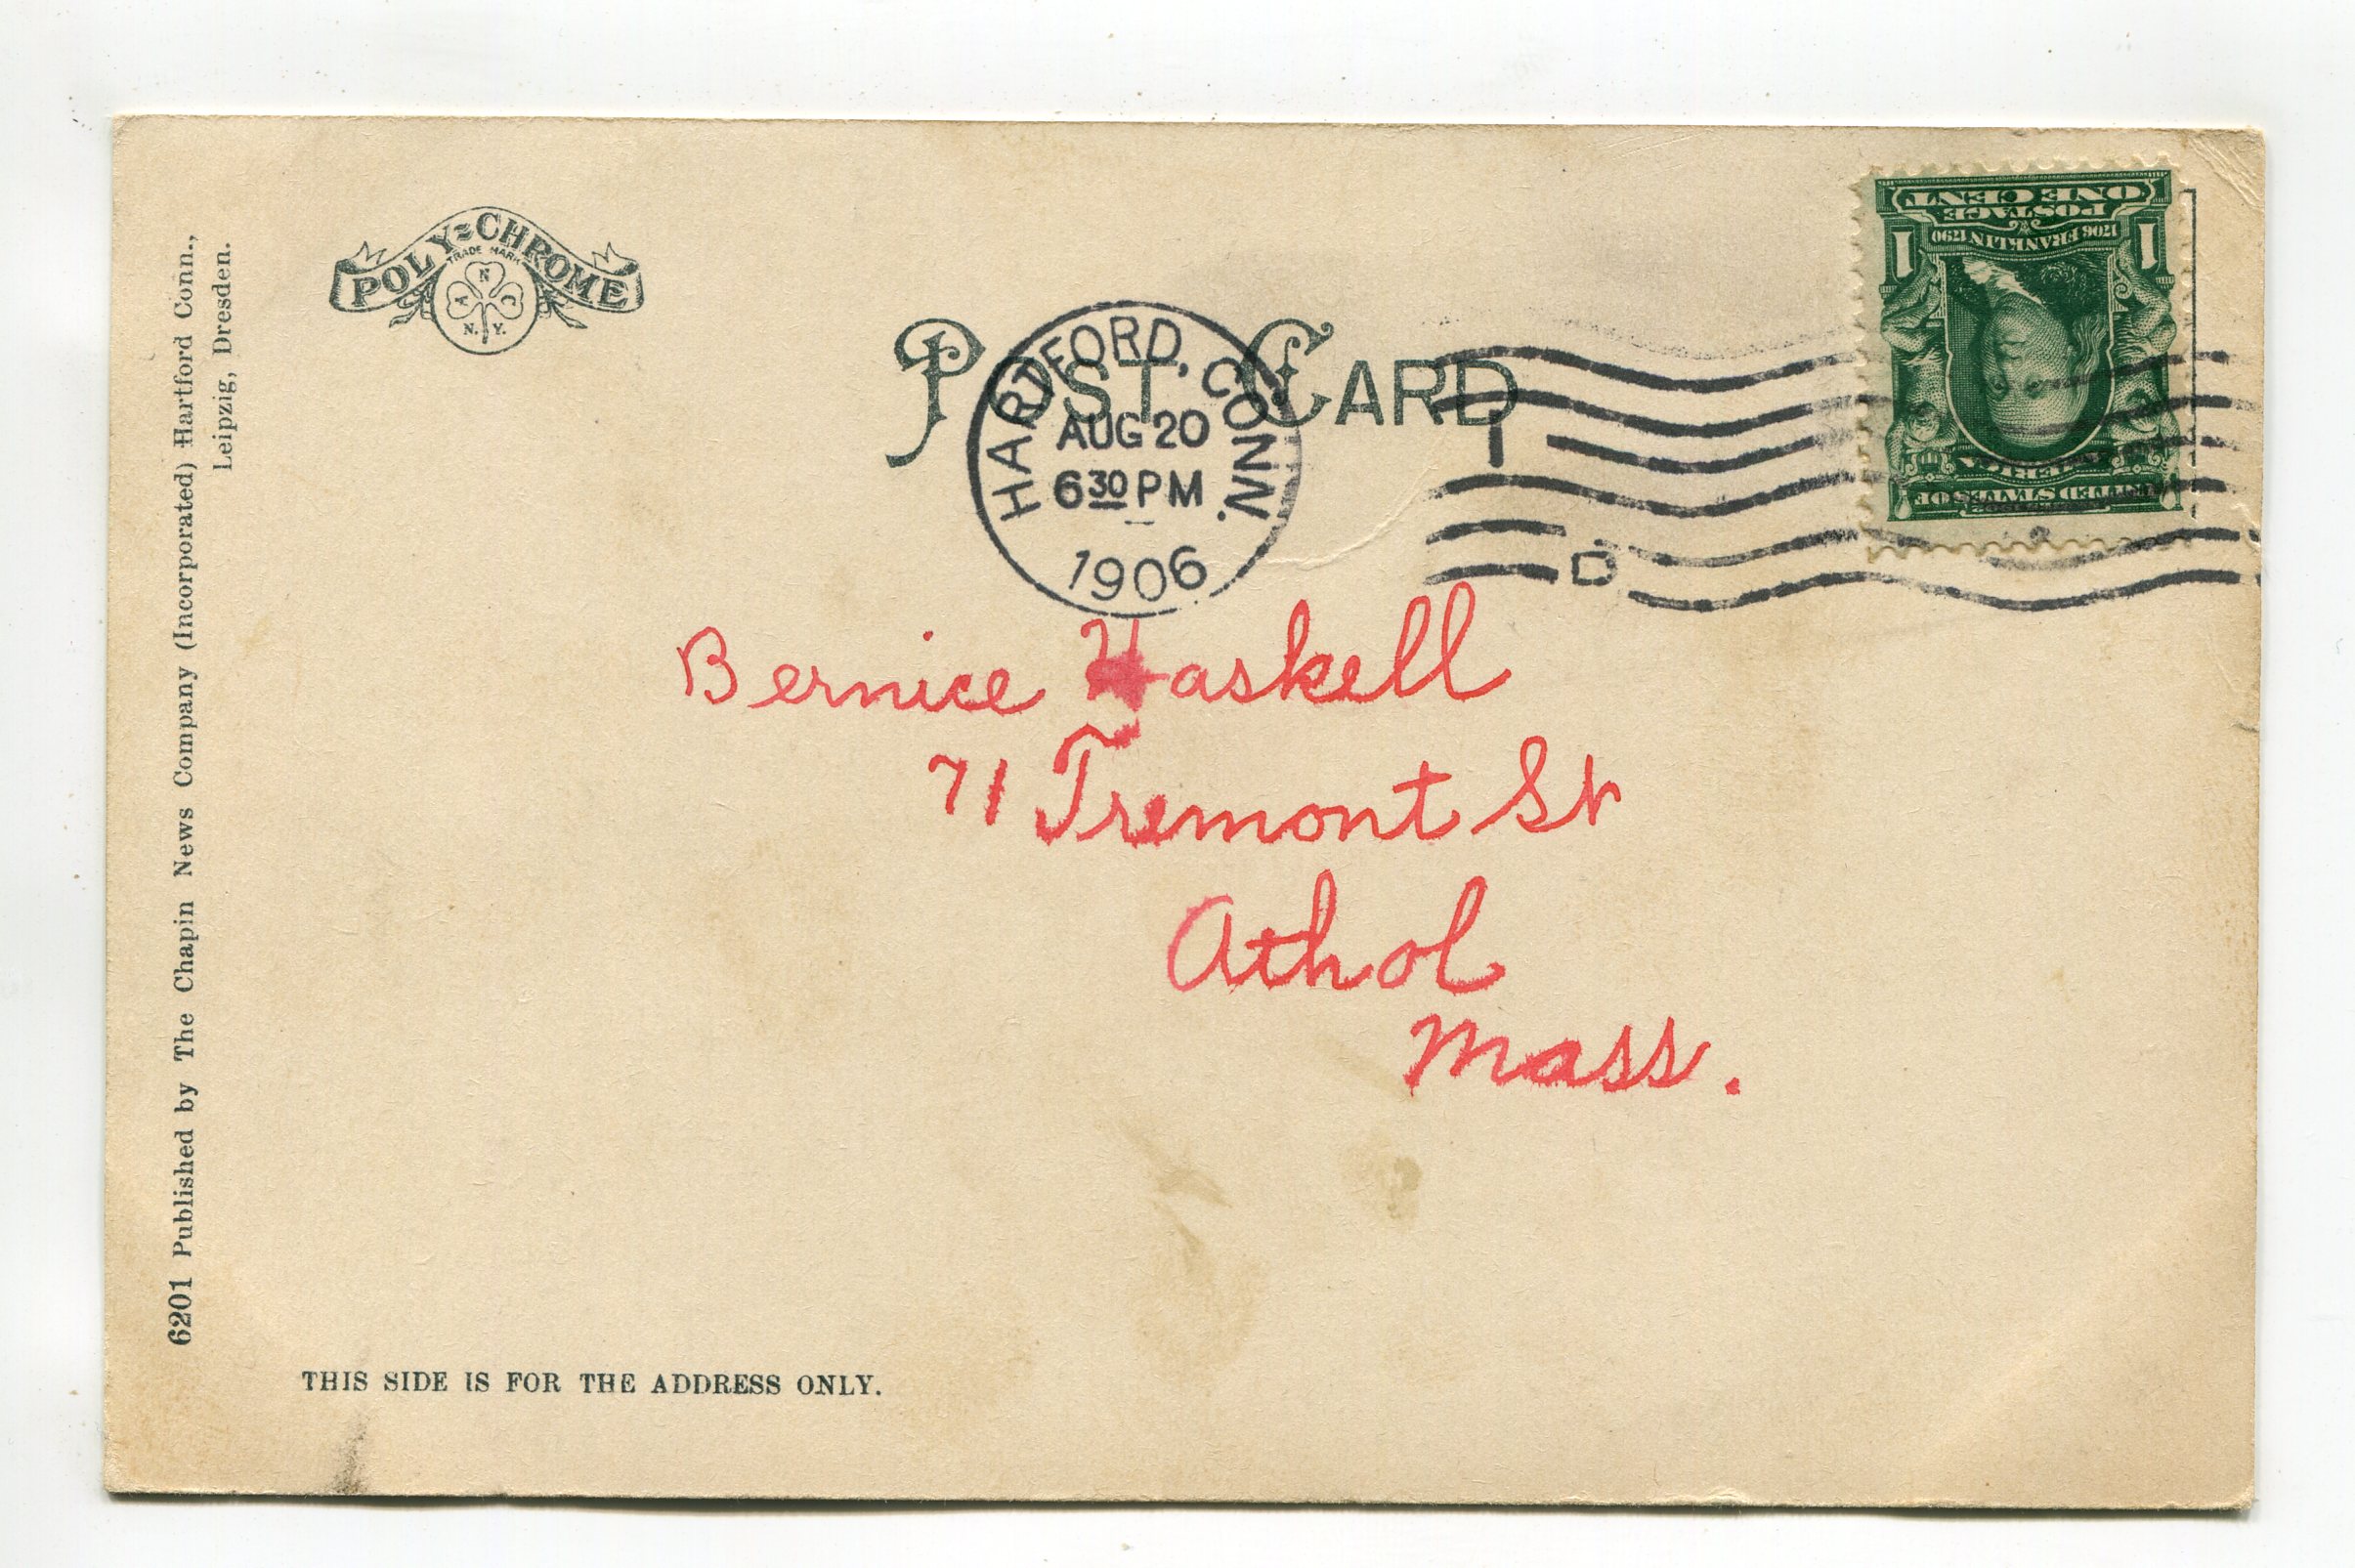 POLY-CHROME
TRADE MARK
A N C
N. Y.
POST CARD
HARTFORD, CONN.
AUG 20
6 30 PM
1906
I
D
ONE CENT
POSTAGE
1706 FRANKLIN 1790
1 1
UNITED STATES OF
AMERICA
Bernice Haskell
71 Tremont St
Athol
Mass.
6201 Published by The Chapin News Company (Incorporated) Hartford Conn.,
Leipzig, Dresden.
THIS SIDE IS FOR THE ADDRESS ONLY.